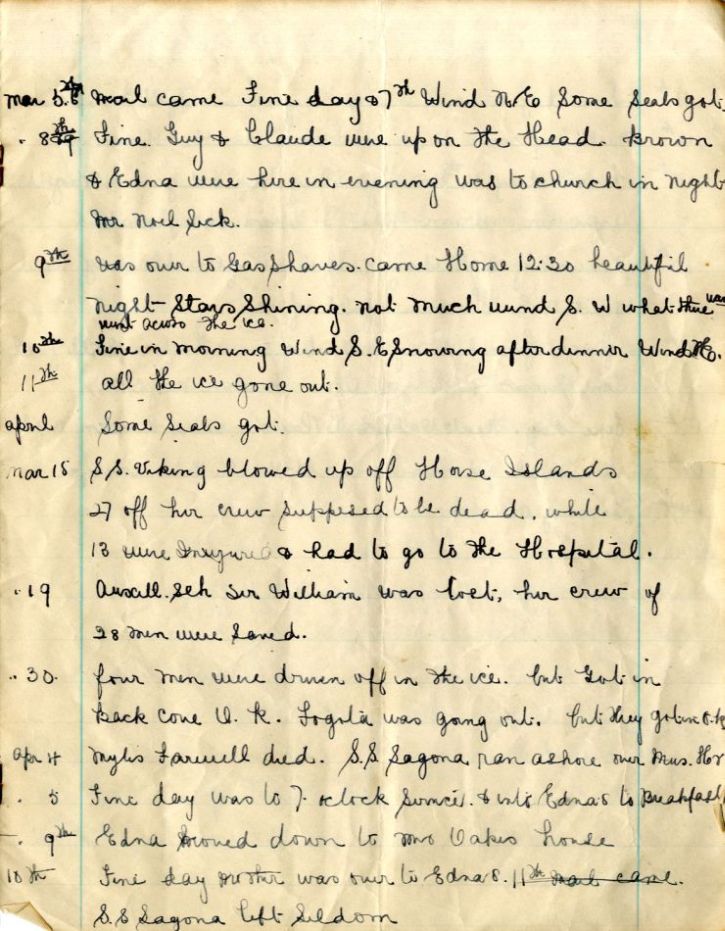 Mar 5.6 Mail came Fine day & 7th Wind N.E Some Seals got.
. 8th Fine. Guy & Claude were up on the Head. Brown
& Edna were here in evening was to church in night
Mr Noel Sick.
9th was over to Gas Shaves. came Home 12:30 beautiful
night Stars Shining. not much wind S. W what there was
went across the ice.
10th Fine in morning Wind S. E Snowing after dinner Wind
11th all the ice gone out.
april Some Seals got.
mar 15 S.S. Viking blowed up off Horse Islands
27 off her crew supposed to be dead. while
13 were Ingured & had to go to the Hospital.
. 19 Auxill. Sch Sir William was lost, her crew of
28 men were Saved.
.. 30. four men were driven off in the ice. but Got in
Back Cove O. K. Fogota was going out. but they got in O.K
Apr 4 Mylis Farwell died. S.S Sagona ran ashore over
. 5 Fine day was to 7. oclock Service. & into Edna's to Breakfast
. 9th Edna moved down to Mrs Oakes house
10th Fine day Mother was over to Edna's. 11th mail came.
S.S Sagona left Seldom